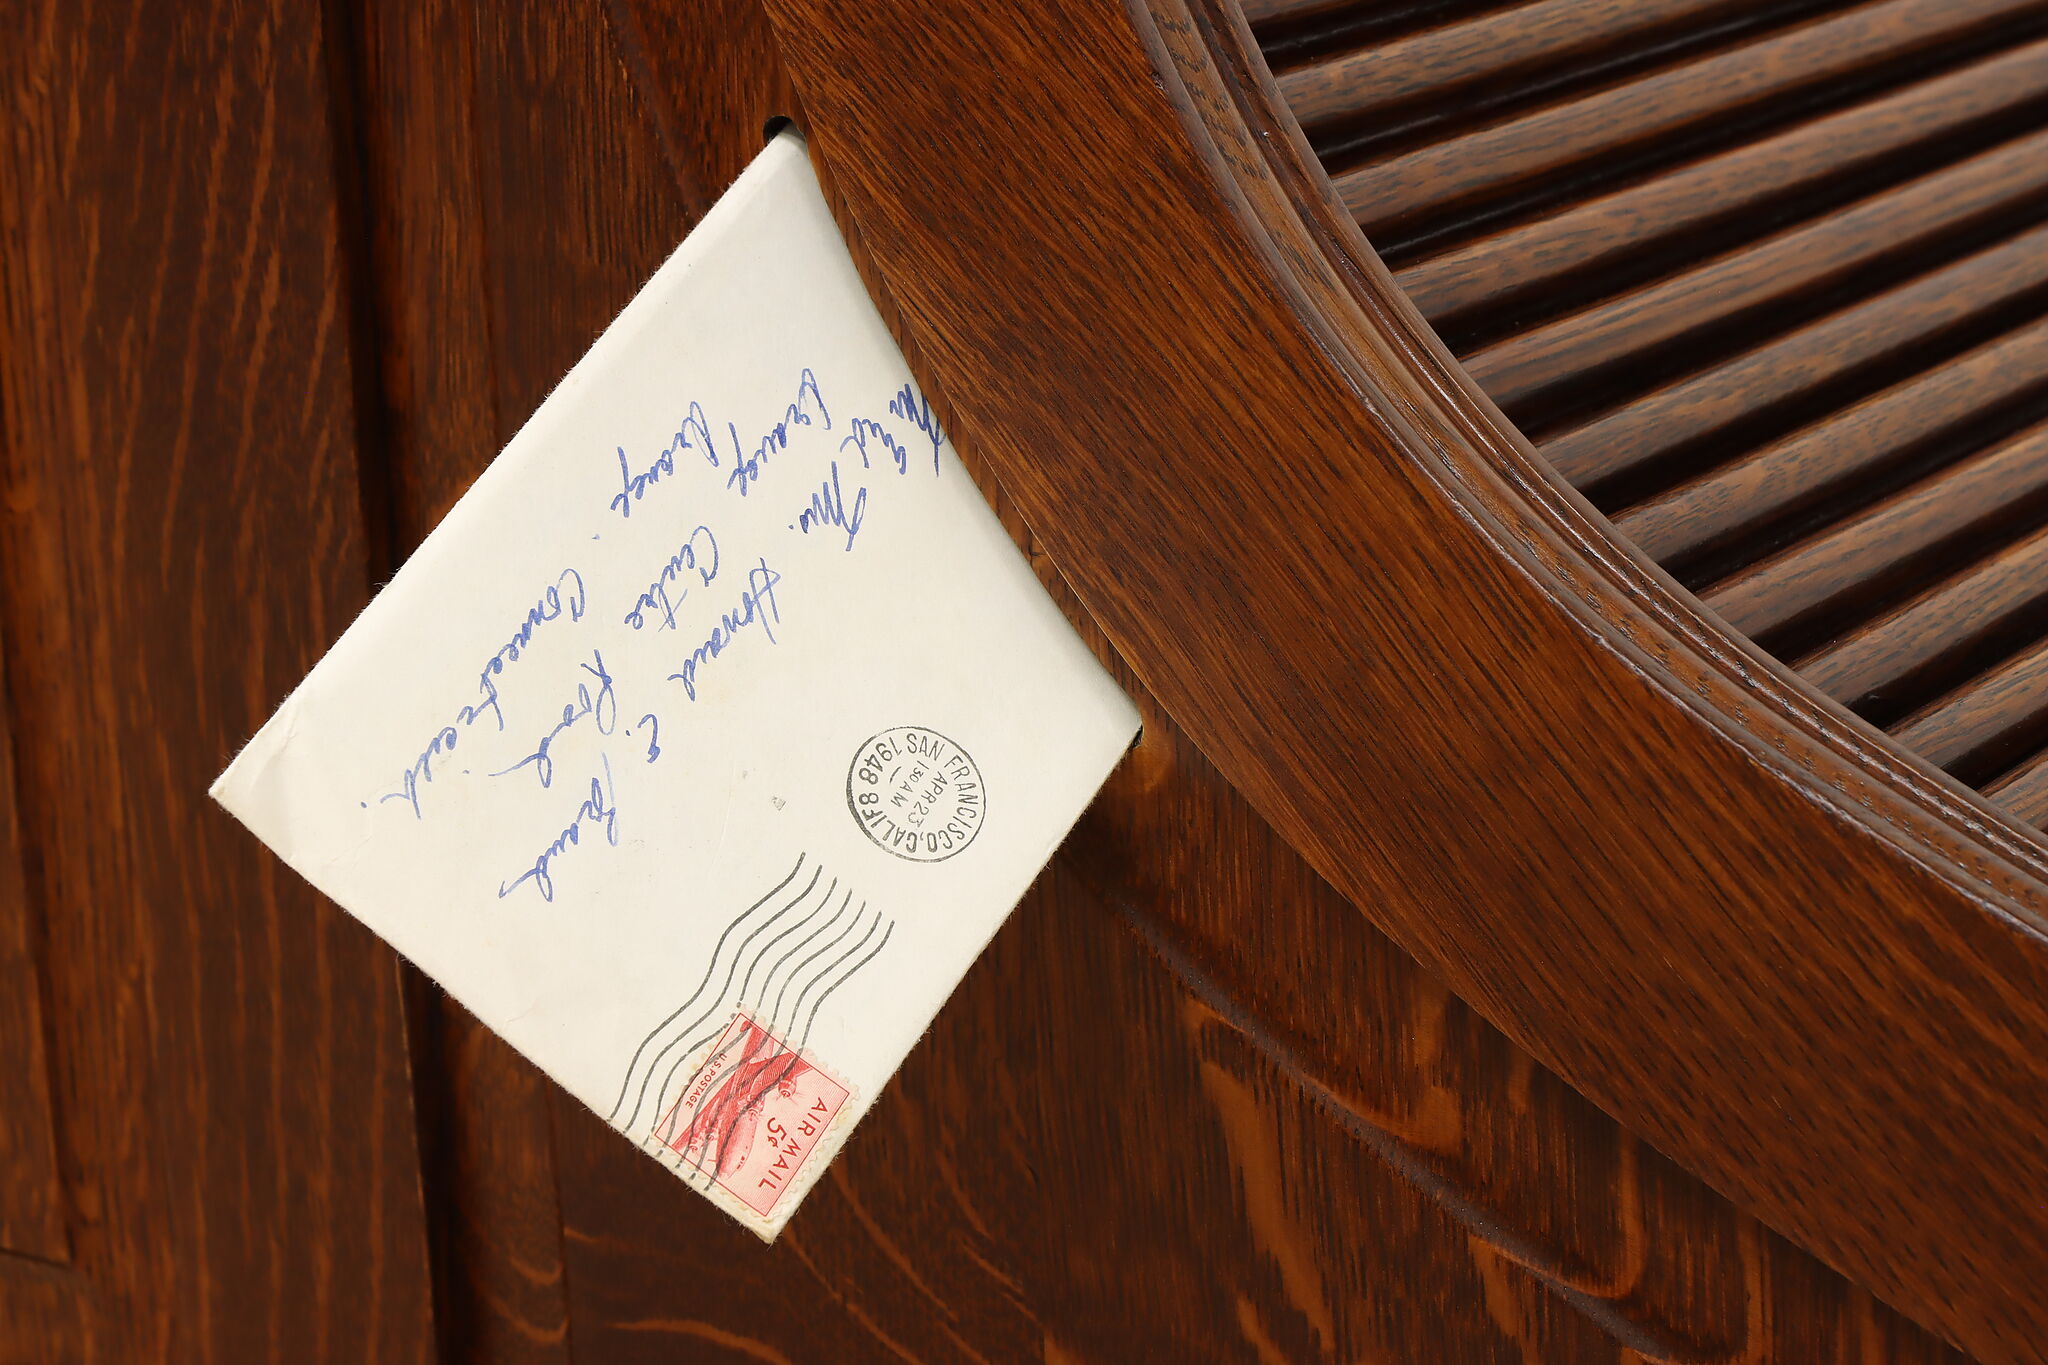 Mr. and Mrs. Howard E. Brand,
Grange Centre Road
Orange. Connecticut.
SAN FRANCISCO, CALIF 8
APR 23
1 30 AM
1948
U.S. POSTAGE
AIR MAIL
5¢